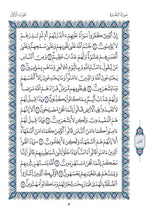 الجزء الأول
سورة البقرة
إِنَّ ٱلَّذِينَ كَفَرُوا۟ سَوَآءٌ عَلَيْهِمْ ءَأَنذَرْتَهُمْ أَمْ لَمْ تُنذِرْهُمْ
لَا يُؤْمِنُونَ ٦ خَتَمَ ٱللَّهُ عَلَىٰ قُلُوبِهِمْ وَعَلَىٰ سَمْعِهِمْ وَعَلَىٰٓ
أَبْصَـٰرِهِمْ غِشَـٰوَةٌ وَلَهُمْ عَذَابٌ عَظِيمٌ ٧ وَمِنَ ٱلنَّاسِ
مَن يَقُولُ ءَامَنَّا بِٱللَّهِ وَبِٱلْيَوْمِ ٱلْـَٔاخِرِ وَمَا هُم بِمُؤْمِنِينَ ٨
يُخَـٰدِعُونَ ٱللَّهَ وَٱلَّذِينَ ءَامَنُوا۟ وَمَا يَخْدَعُونَ إِلَّآ أَنفُسَهُمْ
وَمَا يَشْعُرُونَ ٩ فِى قُلُوبِهِم مَّرَضٌ فَزَادَهُمُ ٱللَّهُ مَرَضًا
وَلَهُمْ عَذَابٌ أَلِيمٌۢ بِمَا كَانُوا۟ يَكْذِبُونَ ١٠ وَإِذَا قِيلَ لَهُمْ
لَا تُفْسِدُوا۟ فِى ٱلْأَرْضِ قَالُوٓا۟ إِنَّمَا نَحْنُ مُصْلِحُونَ ١١
أَلَآ إِنَّهُمْ هُمُ ٱلْمُفْسِدُونَ وَلَـٰكِن لَّا يَشْعُرُونَ ١٢ وَإِذَا قِيلَ
لَهُمْ ءَامِنُوا۟ كَمَآ ءَامَنَ ٱلنَّاسُ قَالُوٓا۟ أَنُؤْمِنُ كَمَآ ءَامَنَ ٱلسُّفَهَآءُ
أَلَآ إِنَّهُمْ هُمُ ٱلسُّفَهَآءُ وَلَـٰكِن لَّا يَعْلَمُونَ ١٣ وَإِذَا لَقُوا۟
ٱلَّذِينَ ءَامَنُوا۟ قَالُوٓا۟ ءَامَنَّا وَإِذَا خَلَوْا۟ إِلَىٰ شَيَـٰطِينِهِمْ قَالُوٓا۟ إِنَّا
مَعَكُمْ إِنَّمَا نَحْنُ مُسْتَهْزِءُونَ ١٤ ٱللَّهُ يَسْتَهْزِئُ بِهِمْ
وَيَمُدُّهُمْ فِى طُغْيَـٰنِهِمْ يَعْمَهُونَ ١٥ أُو۟لَـٰٓئِكَ ٱلَّذِينَ ٱشْتَرَوُا۟
ٱلضَّلَـٰلَةَ بِٱلْهُدَىٰ فَمَا رَبِحَت تِّجَـٰرَتُهُمْ وَمَا كَانُوا۟ مُهْتَدِينَ ١٦
٣